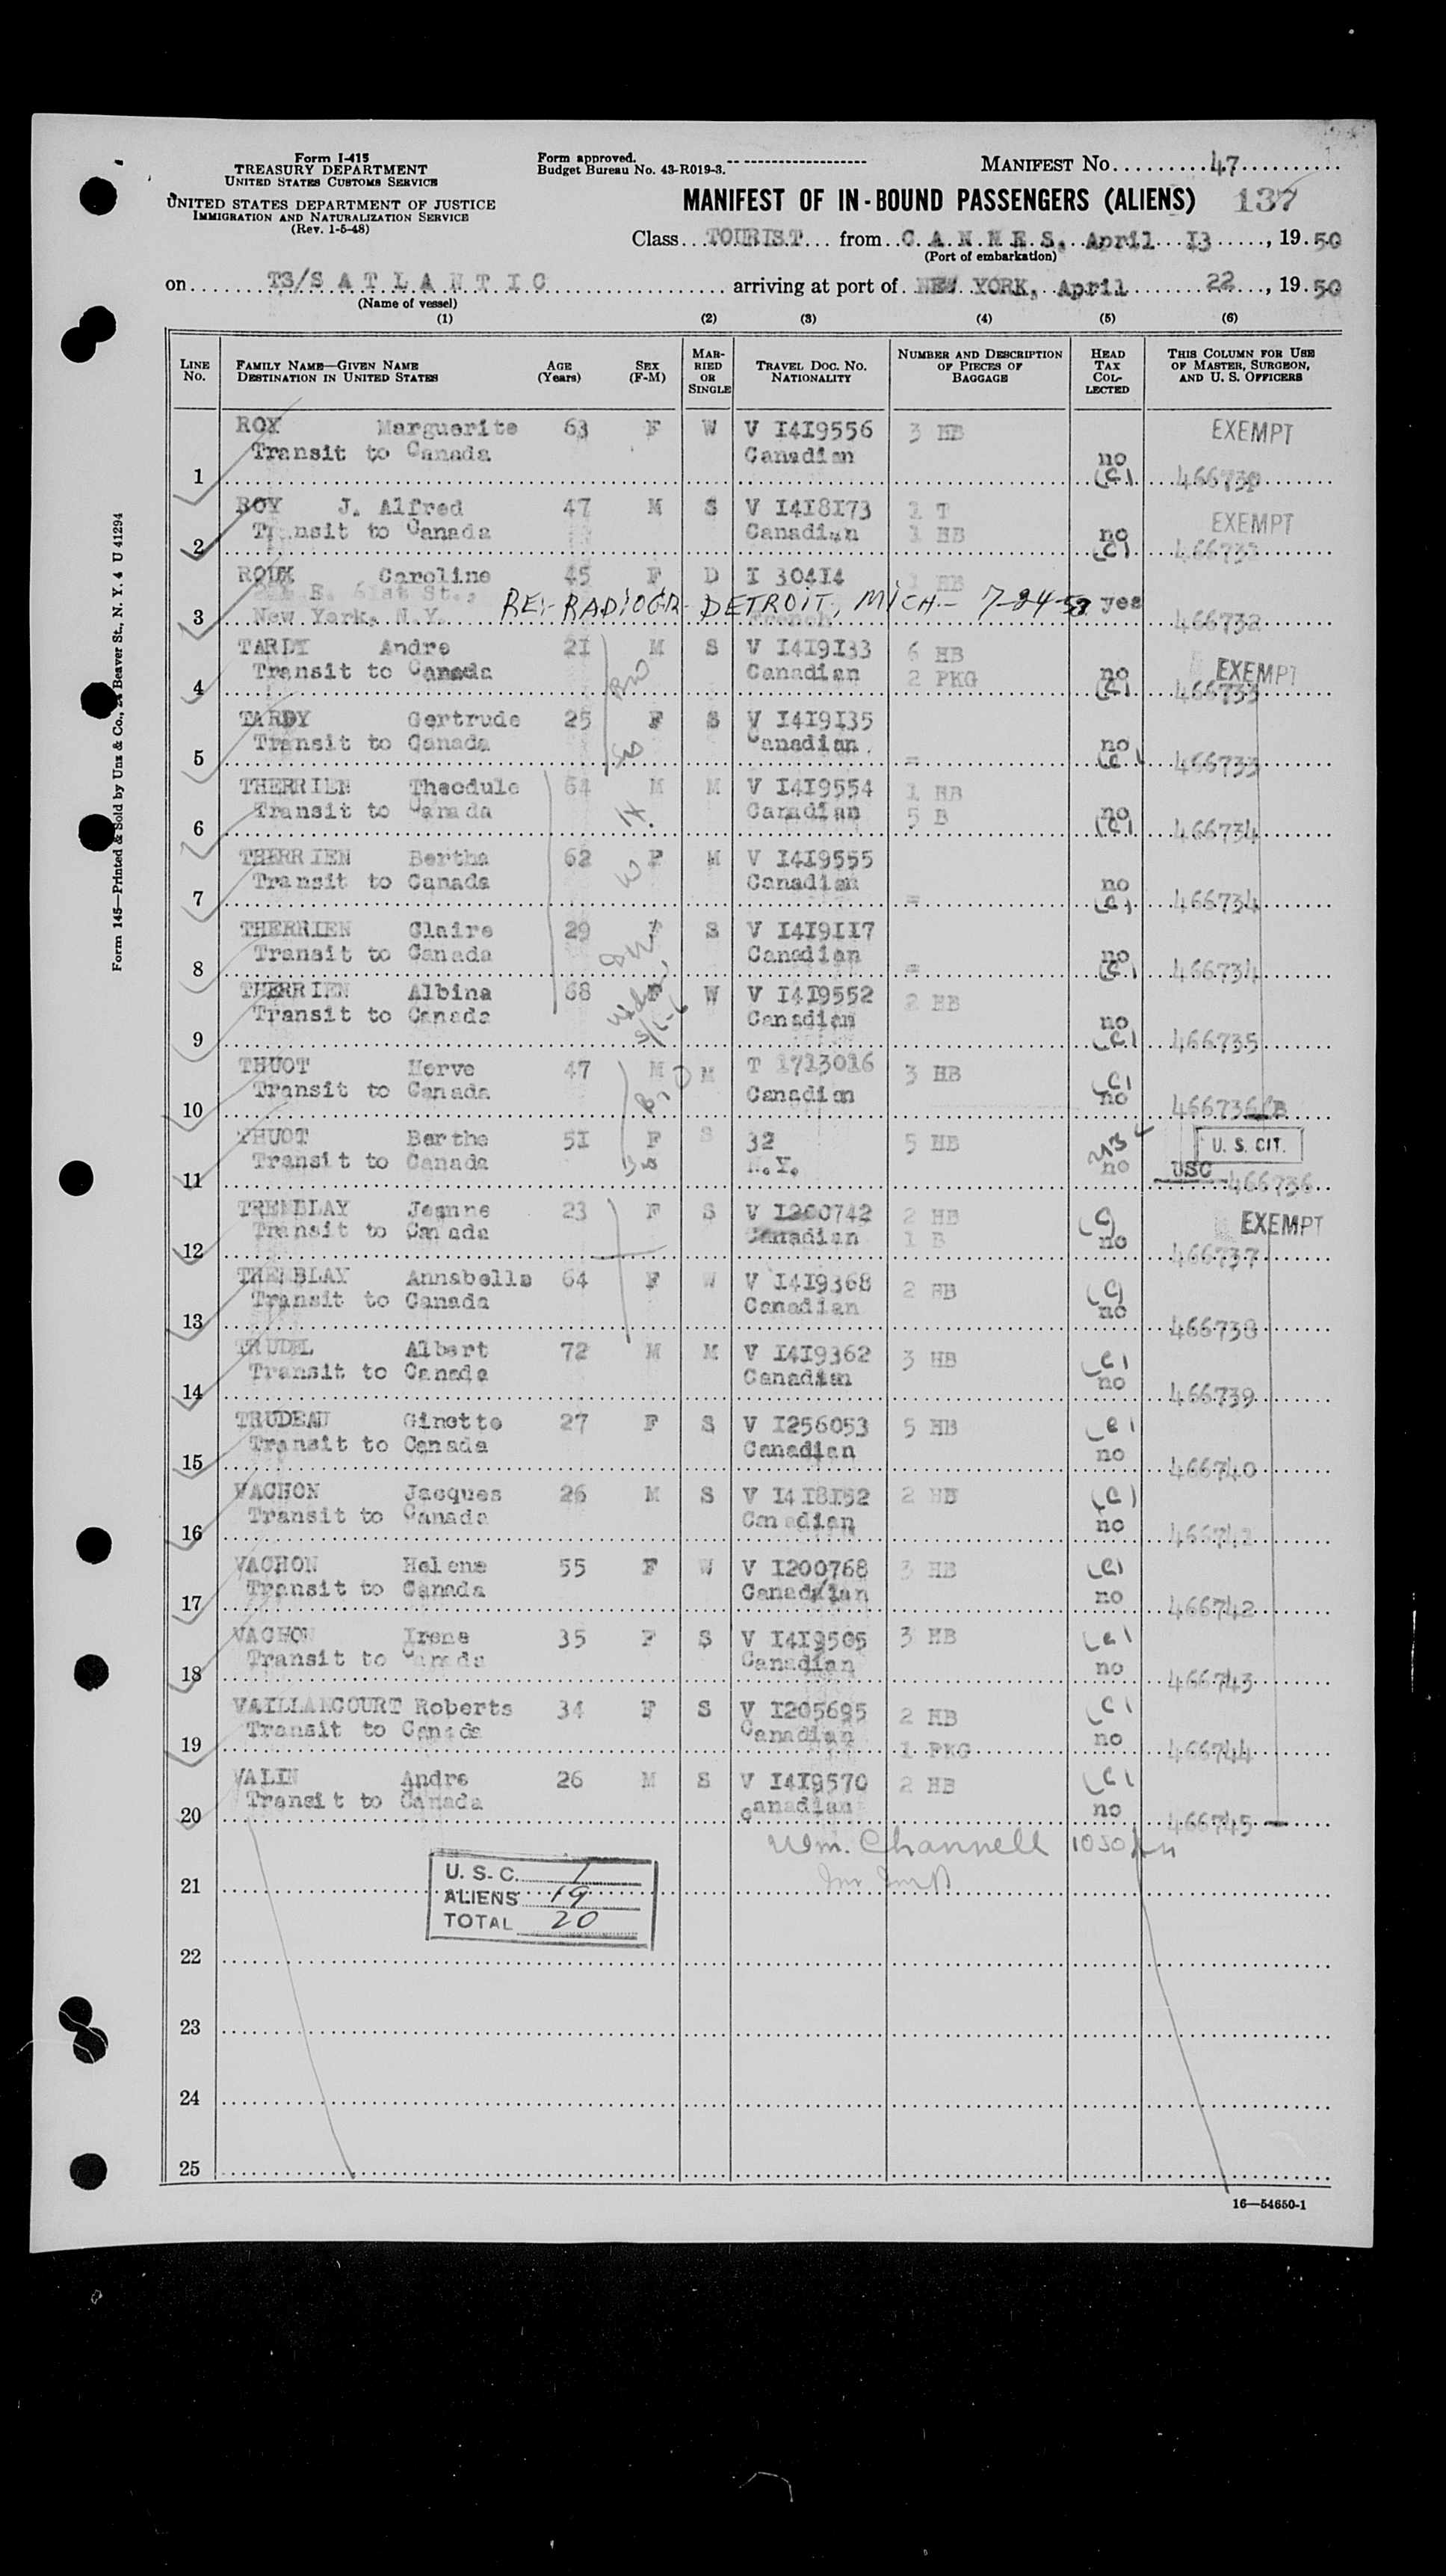 Form I-415
TREASURY DEPARTMENT
UNITED STATES CUSTOMS SERVICE
UNITED STATES DEPARTMENT OF JUSTICE
IMMIGRATION AND NATURALIZATION SERVICE
(Rev. 1-5-48)
Form approved.
Budget Bureau No. 43-R019-3.
MANIFEST No. 47
MANIFEST OF IN-BOUND PASSENGERS (ALIENS) 137
Class TOURIST from C.A.N.N.E.S, April 13, 1950
(Port of embarkation)
on TS/S A T L A N T I C arriving at port of NEW YORK, April 22, 1950
(Name of vessel)
(1) (2) (3) (4) (5) (6)
LINE No. FAMILY NAME—GIVEN NAME DESTINATION IN UNITED STATES AGE (Years) SEX (F-M) MARRIED OR SINGLE TRAVEL DOC. NO. NATIONALITY NUMBER AND DESCRIPTION OF PIECES OF BAGGAGE HEAD TAX COLLECTED THIS COLUMN FOR USE OF MASTER, SURGEON, AND U. S. OFFICERS
ROY Marguerite 63 F W V I4I9556 3 HB EXEMPT
1 Transit to Canada Canadian no (C)
ROY J. Alfred 47 M S V I4I8I73 1 T EXEMPT
2 Transit to Canada Canadian 1 HB no (C)
ROUX Caroline 45 F D I 304I4 1 HB
E. 61st St.,
3 New York, N.Y. RE:- RADIOGR- DETROIT, MICH.- French yes 466732
TARDY Andre 2I M S V I4I9I33 6 HB EXEMPT
4 Transit to Canada Canadian 2 PKG no (C) 466733
TARDY Gertrude 25 F S V I4I9I35
5 Transit to Canada Canadian = no (C) 466733
THERRIEN Theodule 64 M M V I4I9554 1 HB
6 Transit to Canada Canadian 5 B no (C) 466734
THERRIEN Bertha 62 F M V I4I9555
7 Transit to Canada Canadian = no (C) 466734
THERRIEN Claire 29 F S V I4I9II7
8 Transit to Canada Canadian = no (C) 466734
THERRIEN Albina 68 F W V I4I9552 2 HB
9 Transit to Canada Canadian no (C) 466735
THUOT Herve 47 M M T 1713016 3 HB (C)
10 Transit to Canada Canadian no 466736
THUOT Berthe 5I F S 32 5 HB U. S. CIT.
11 Transit to Canada N.Y. no USC 466736
TREMBLAY Jeanne 23 F S V I200742 2 HB (C) EXEMPT
12 Transit to Canada Canadian 1 B no 466737
TREMBLAY Annabelle 64 F W V I4I9368 2 HB (C)
13 Transit to Canada Canadian no 466738
TRUDEL Albert 72 M M V I4I9362 3 HB (C)
14 Transit to Canada Canadian no 466739
TRUDEAU Ginette 27 F S V I256053 5 HB (C)
15 Transit to Canada Canadian no 466740
VACHON Jacques 26 M S V I4I8I52 2 HB (C)
16 Transit to Canada Canadian no
VACHON Helene 55 F W V I200768 3 HB (C)
17 Transit to Canada Canadian no 466742
VACHON Irene 35 F S V I4I9505 3 HB (C)
18 Transit to Canada Canadian no 466743
VAILLANCOURT Roberts 34 F S V I205695 2 HB (C)
19 Transit to Canada Canadian 1 PKG no 466744
VALIN Andre 26 M S V I4I9570 2 HB (C)
20 Transit to Canada Canadian no 466745
Wm. Channell
U. S. C. 1
21
ALIENS 19
TOTAL 20
22
23
24
25
16—54650-1
Form 145—Printed & Sold by Unz & Co., 24 Beaver St., N. Y. 4 U 41294